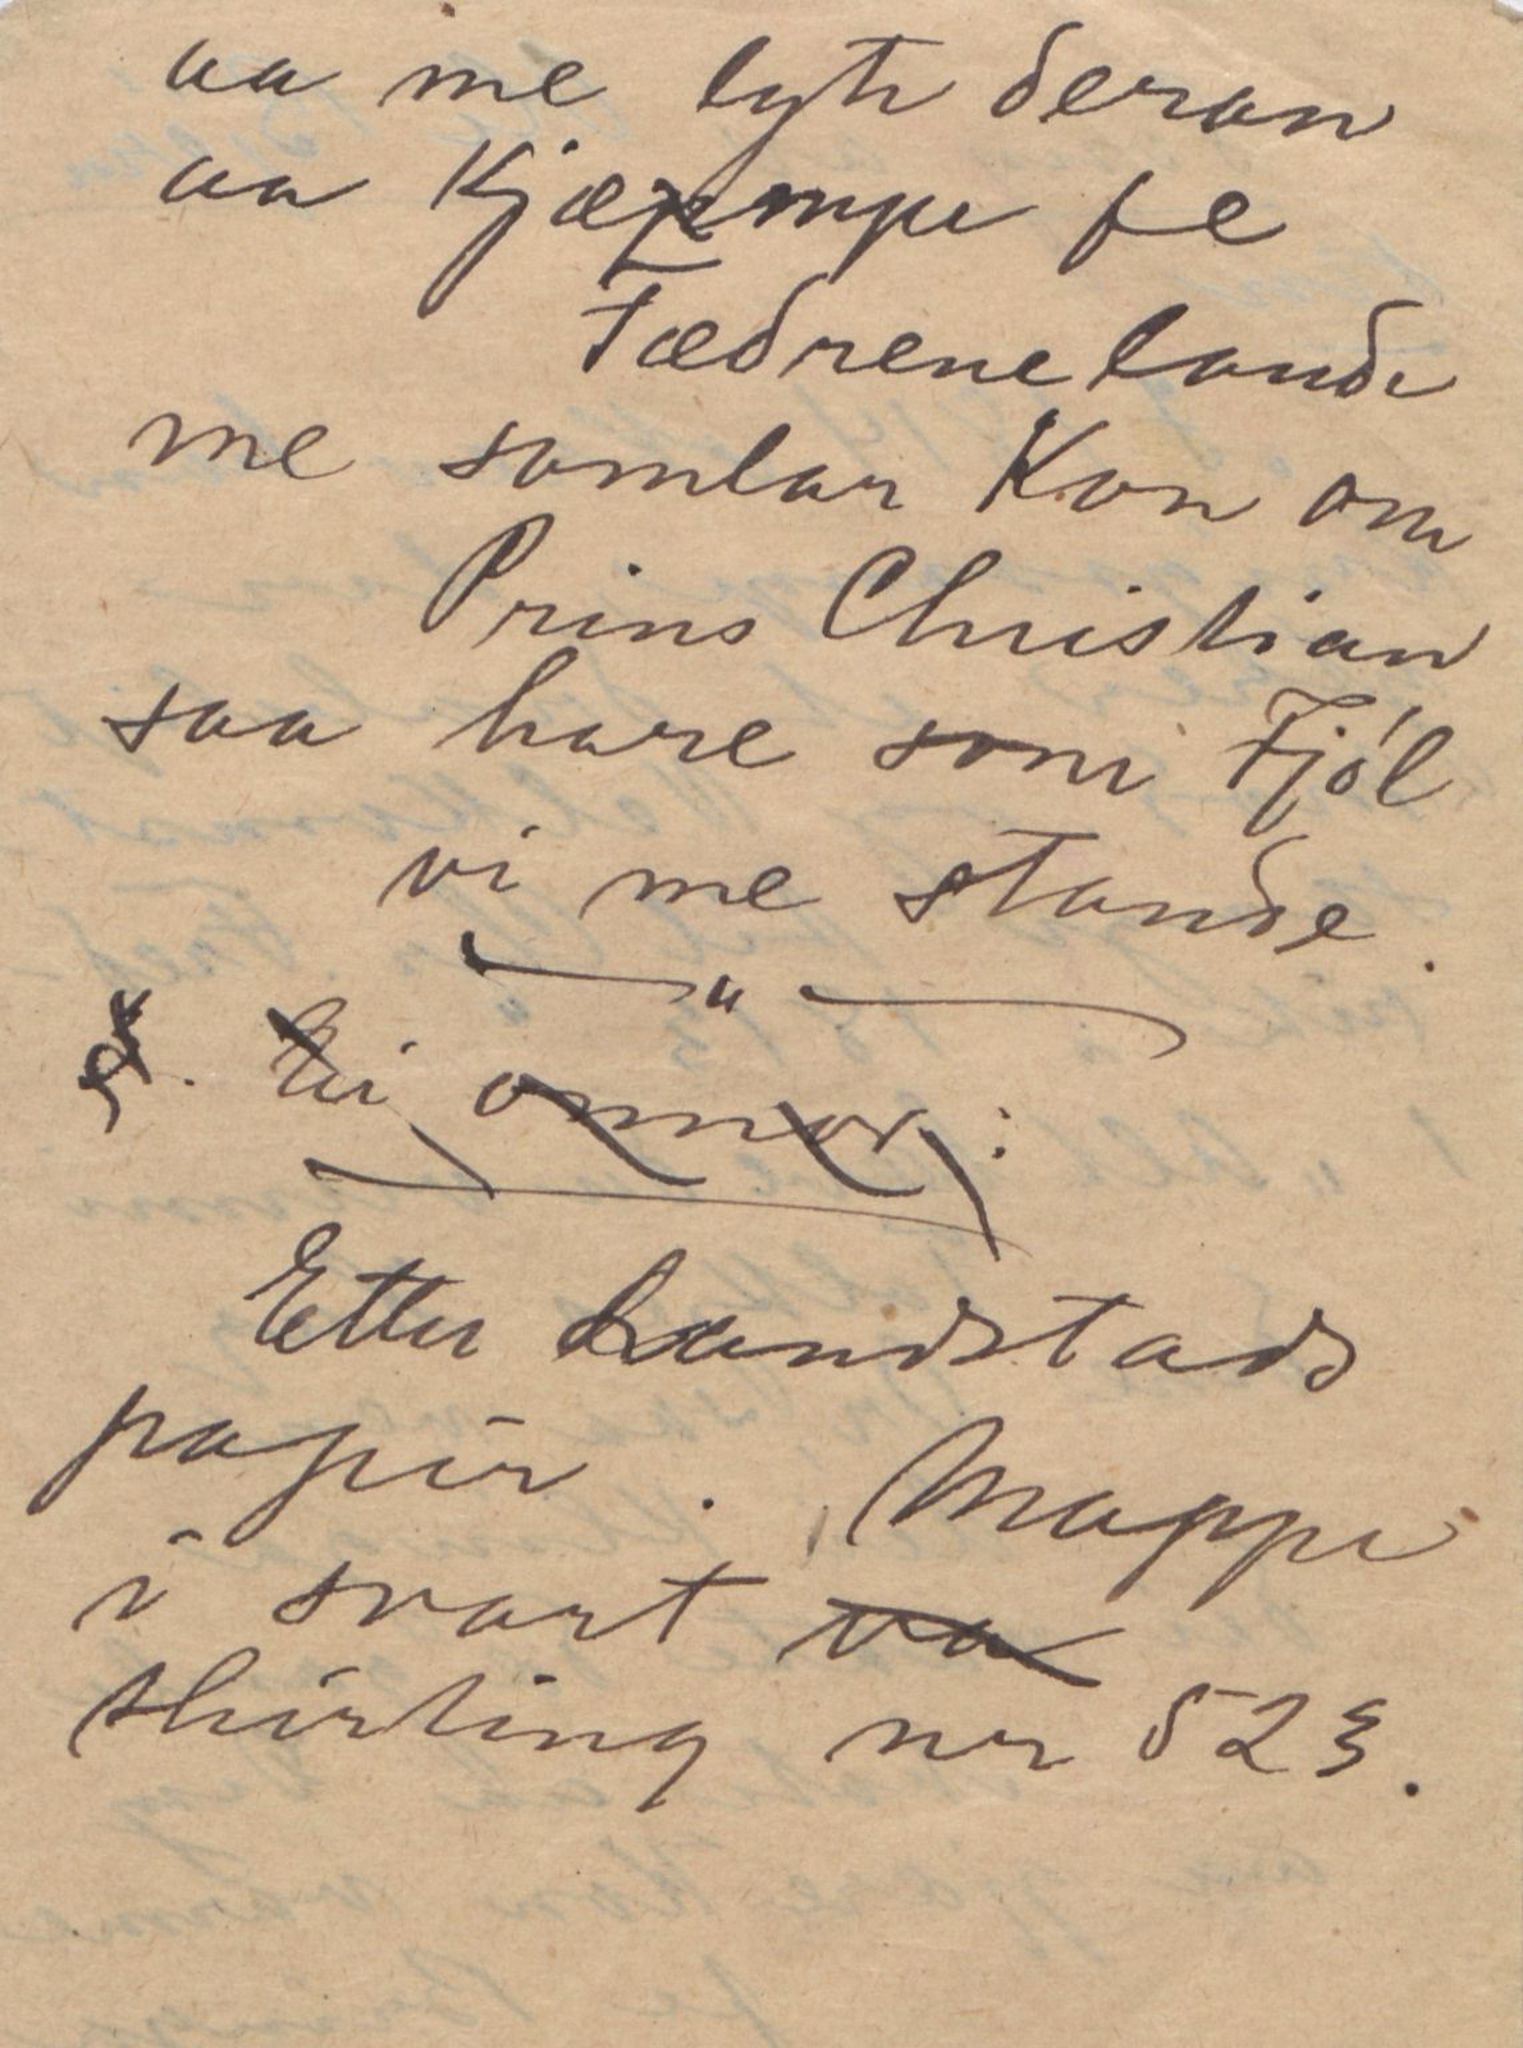 aa me lyte deran
aa Kjæmpe fe
Fædrenelande
me samlar Kon om
Prins Christian
saa hare som Fjöl
vi me stande.
"
Ei annor:
Etter Landstads
papir. Mappe
i svart va
shirting nr 523.